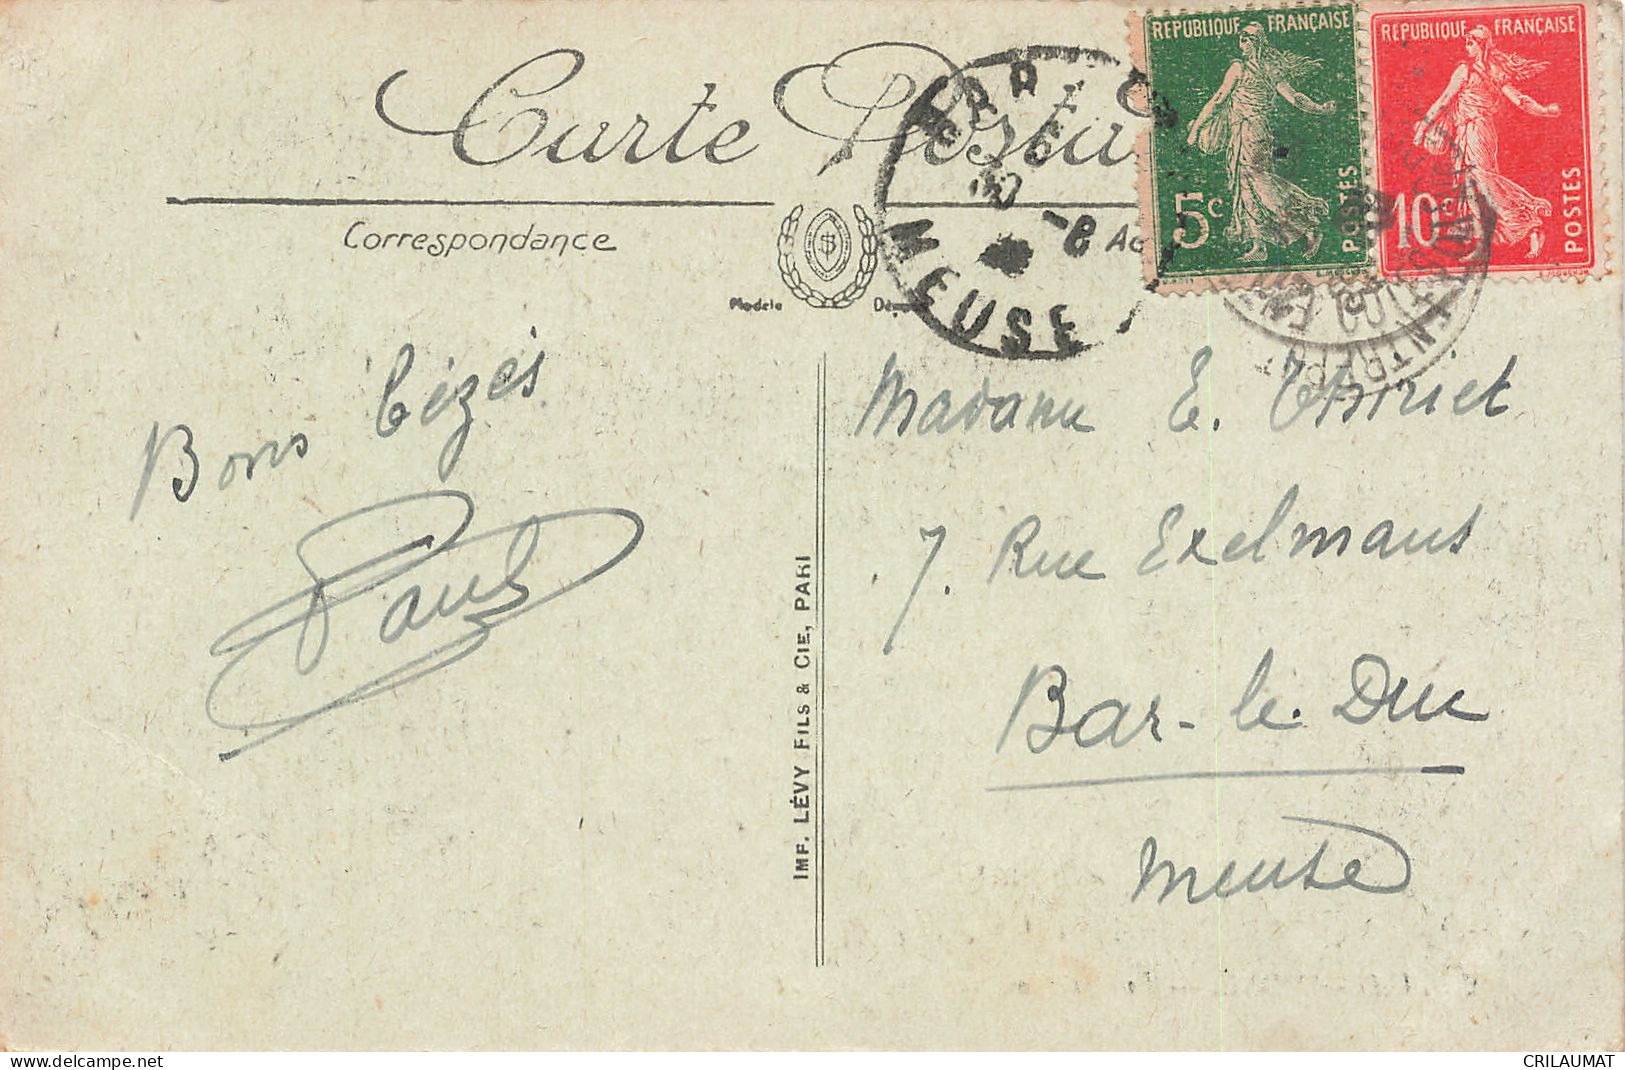 Carte Posta
Correspondance
Modèle
MEUSE
-8
RÉPUBLIQUE FRANÇAISE
5c
POSTES
RÉPUBLIQUE FRANÇAISE
10c
POSTES
ENTREPOT
Bons bézés
Paul
IMP. LÉVY FILS & CIE, PARI
Madame E. Thiriet
7. Rue Exelmans
Bar-le-Duc
Meuse
delcampe.net
CRILAUMAT